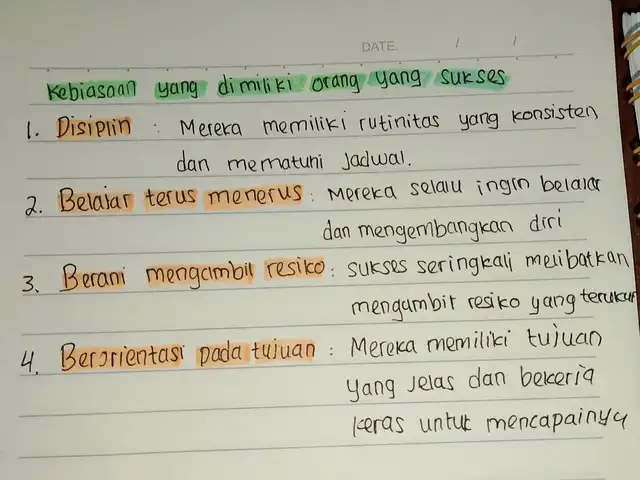 DATE. / /
Kebiasaan yang dimiliki orang yang sukses
1. Disiplin : Mereka memiliki rutinitas yang konsisten
dan mematuhi Jadwal.
2. Belajar terus menerus : Mereka selalu ingin belajar
dan mengembangkan diri
3. Berani mengambil resiko : sukses seringkali melibatkan
mengambil resiko yang terukur
4. Berorientasi pada tujuan : Mereka memiliki tujuan
yang Jelas dan bekerja
keras untuk mencapainya